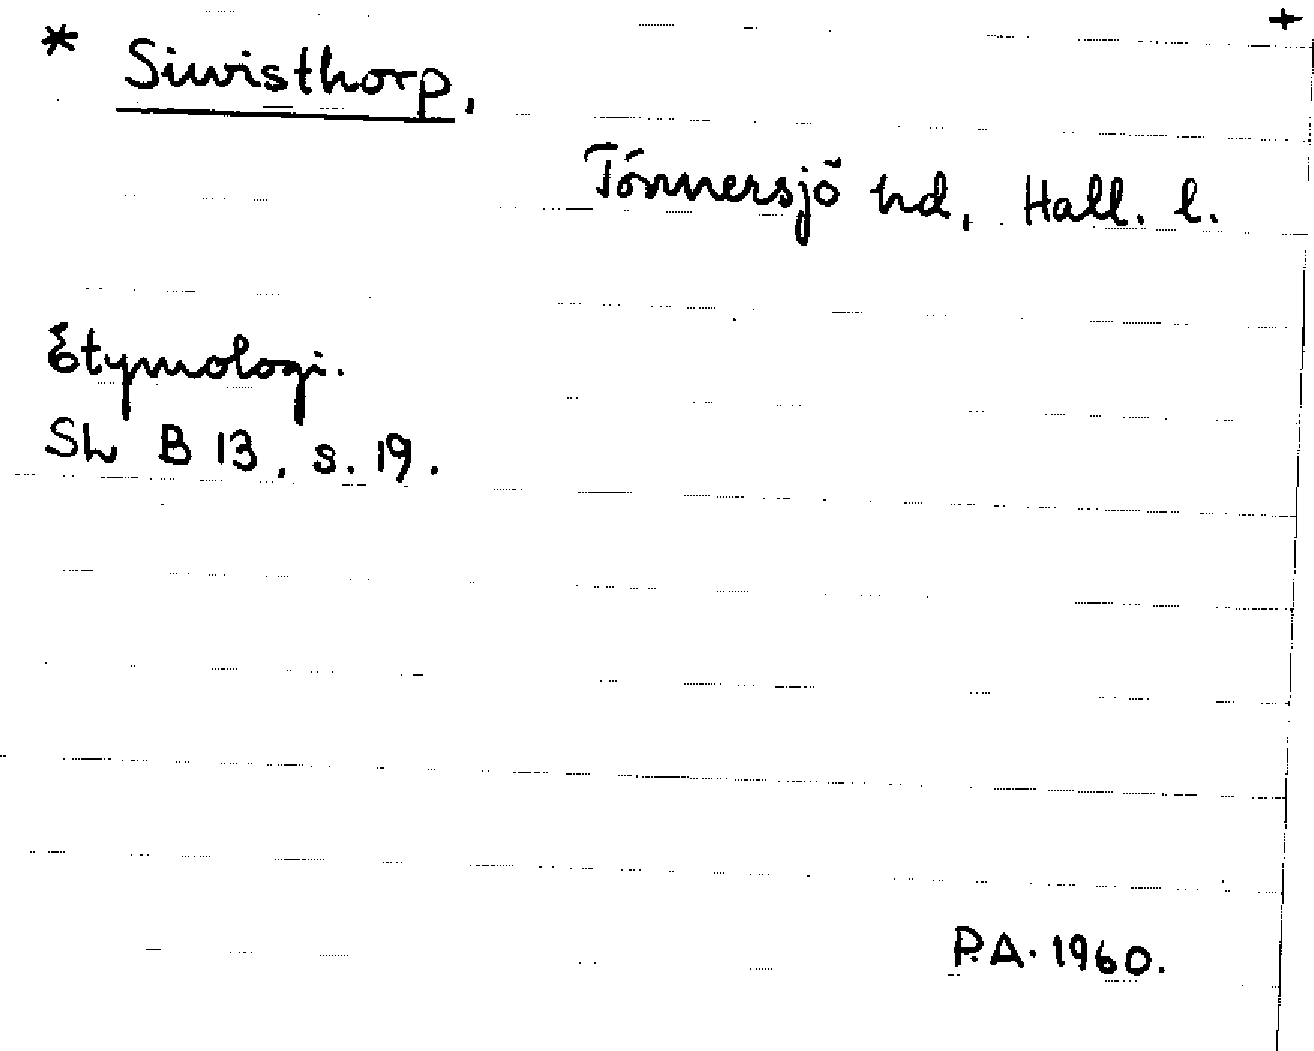 * Siwisthorp.
+
Tönnersjö hd, Hall. l.
Etymologi.
SL B 13, s. 19.
P.A. 1960.